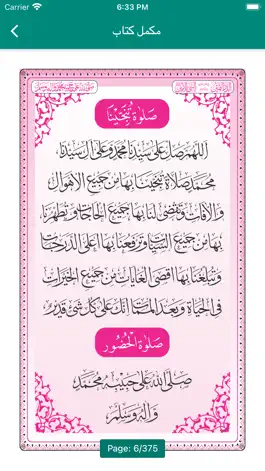 Carrier
6:33 PM
مکمل کتاب
صلوٰۃ تُنَجِّینَا
اللهم صل علی سیدنا محمد وعلی آل سیدنا
محمد صلاة تنجینا بها من جمیع الاهوال
والآفات وتقضی لنا بها جمیع الحاجات وتطهرنا
بها من جمیع السیئات وترفعنا بها اعلی الدرجات
وتبلغنا بها اقصی الغایات من جمیع الخیرات
فی الحیاة وبعد الممات انک علی کل شیء قدیر
صلوٰۃ الحضور
صلی الله علی حبیبه محمد
واله وسلم
Page: 6/375